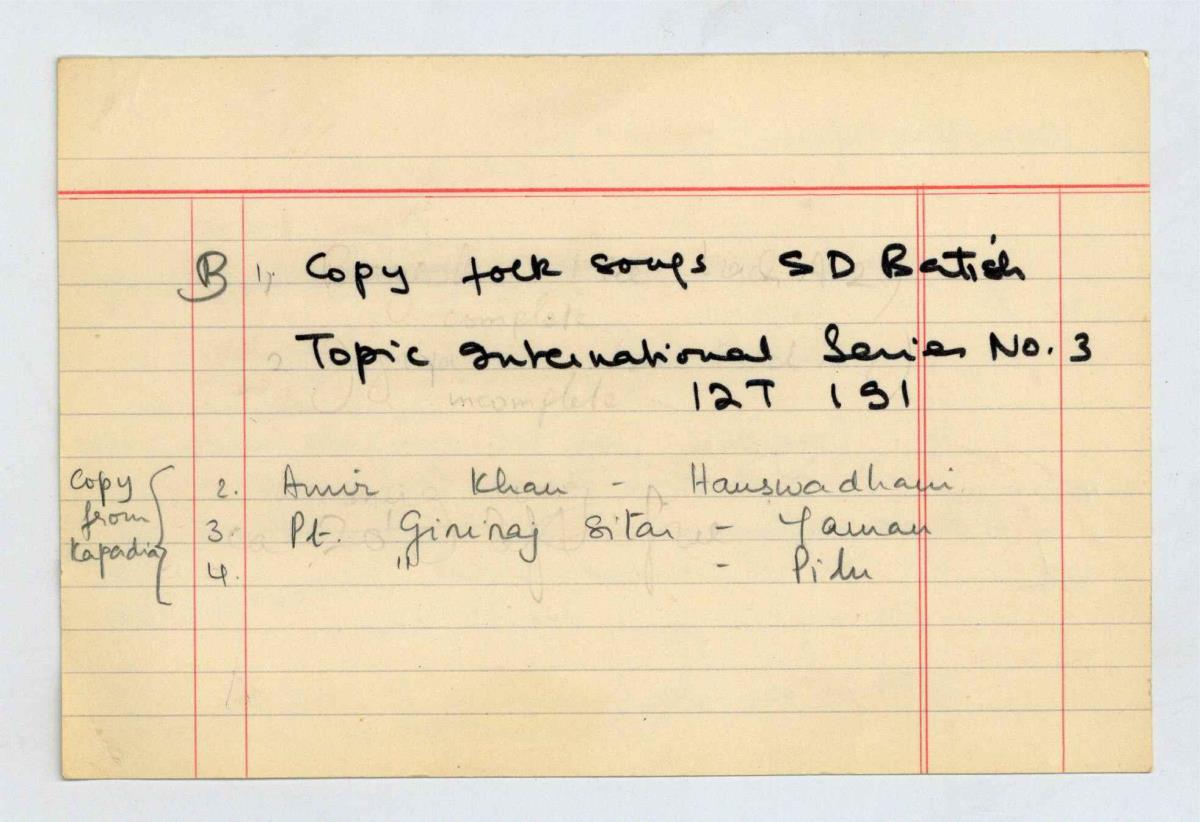 B 1, Copy folk songs S D Batish
Topic International Series No. 3
12T 191
2. Amir Khan - Hanswadhani
3. Pt. Giriraj Sitar - Yaman
4. " - Pilu
Copy
from
Kapadia
complete
2.
incomplete